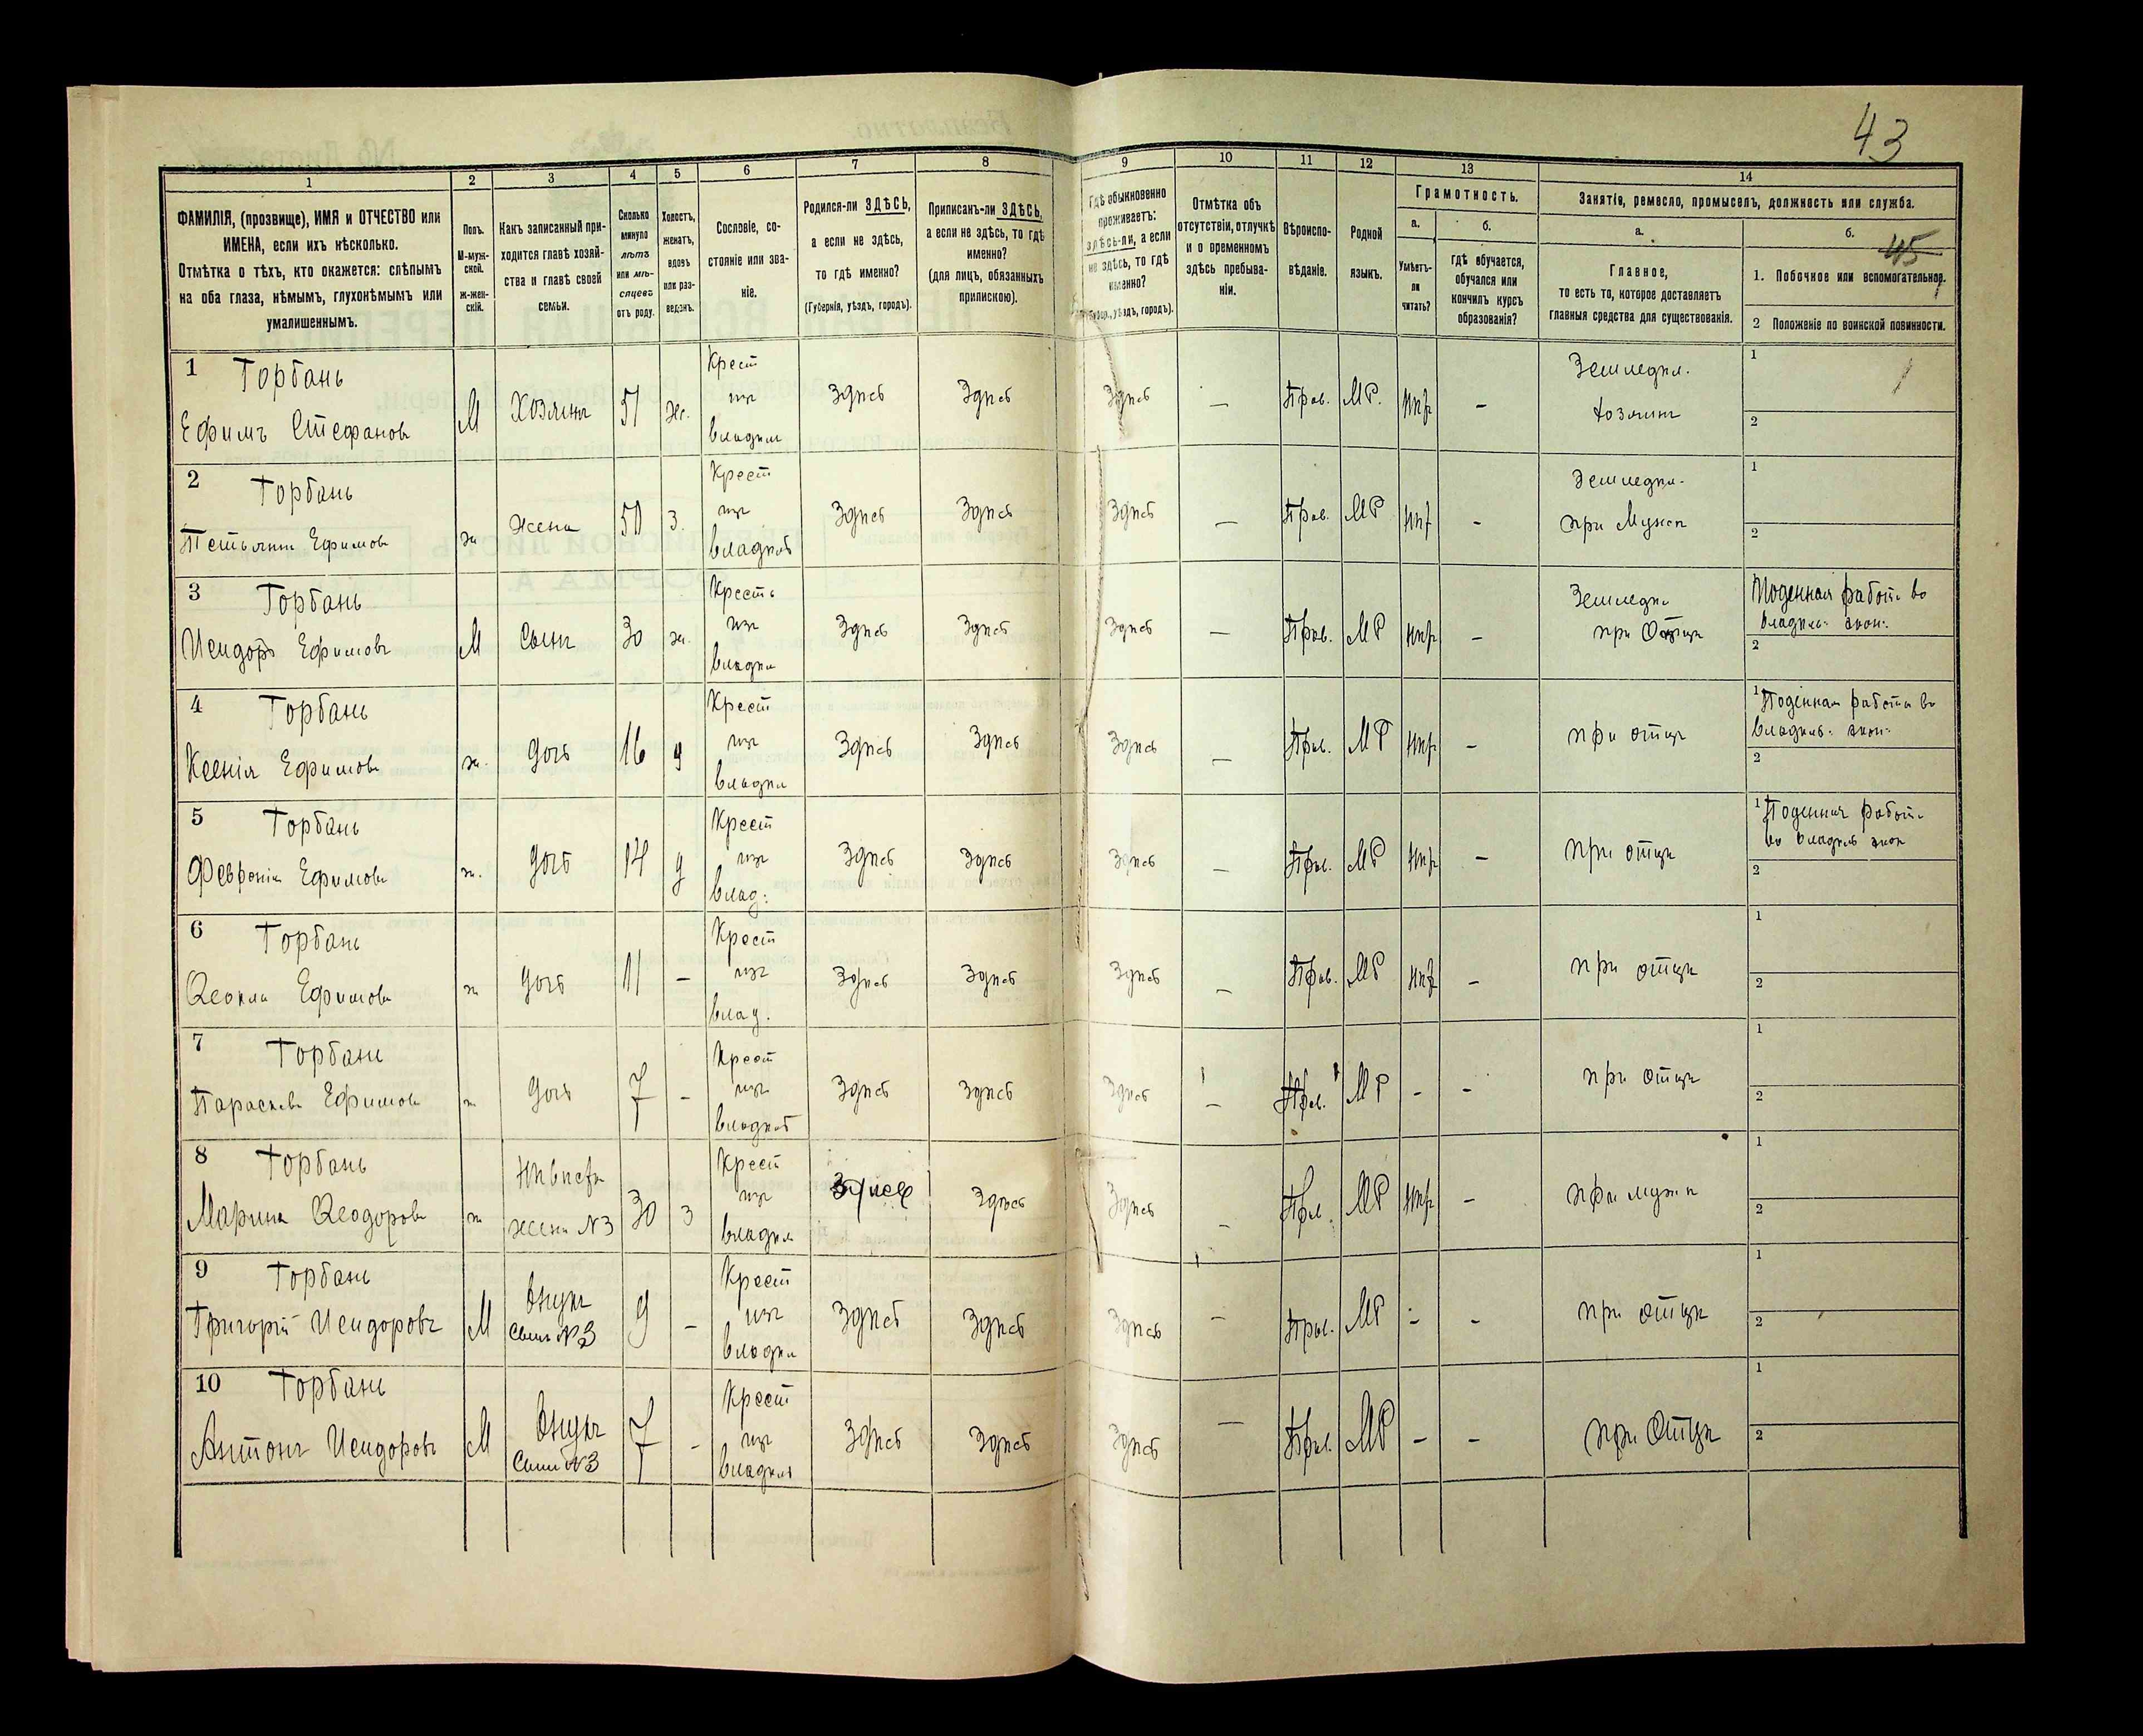 43
1
2
3
4
5
6
7
8
9
10
11
12
13
14
ФАМИЛІЯ, (прозвище), ИМЯ и ОТЧЕСТВО или
ИМЕНА, если ихъ нѣсколько.
Отмѣтка о тѣхъ, кто окажется: слѣпымъ
на оба глаза, нѣмымъ, глухонѣмымъ или
умалишеннымъ.
Полъ.
М-муж-
ской.
ж-жен-
скій.
Какъ записанный при-
ходится главѣ хозяй-
ства и главѣ своей
семьи.
Сколько
минуло
лѣтъ
или мѣ-
сяцевъ
отъ роду.
Холостъ,
женатъ,
вдовъ
или раз-
веденъ.
Сословіе, со-
стояніе или зва-
ніе.
Родился-ли ЗДѢСЬ,
а если не здѣсь,
то гдѣ именно?
(Губернія, уѣздъ, городъ).
Приписанъ-ли ЗДѢСЬ,
а если не здѣсь, то гдѣ
именно?
(для лицъ, обязанныхъ
припискою).
Гдѣ обыкновенно
проживаетъ:
здѣсь-ли, а если
не здѣсь, то гдѣ
именно?
(Губер., уѣздъ, городъ).
Отмѣтка объ
отсутствіи, отлучкѣ
и о временномъ
здѣсь пребыва-
ніи.
Вѣроиспо-
вѣданіе.
Родной
языкъ.
Грамотность.
а.
Умѣетъ-
ли
читать?
б.
гдѣ обучается,
обучался или
кончилъ курсъ
образованія?
Занятіе, ремесло, промыселъ, должность или служба.
а.
Главное,
то есть то, которое доставляетъ
главныя средства для существованія.
б.
45
1. Побочное или вспомогательное.
2 Положеніе по воинской повинности.
1 Горбань
Ефимъ Стефановъ
М
Хозяинъ
51
ж.
Крест
изъ
владѣл
Здѣсь
Здѣсь
Здѣсь
—
Прав.
МР.
Нѣт
-
Земледѣл.
хозяинъ
1
2
2 Горбань
Ефимова
ж
Жена
50
з.
Крест
изъ
владѣль
Здѣсь
Здѣсь
Здѣсь
—
Прав.
МР
Нѣт
-
Земледѣл.
при Мужѣ
1
2
3 Горбань
Исидоръ Ефимовъ
М
Сынъ
30
ж.
Кресть
изъ
владѣл
Здѣсь
Здѣсь
Здѣсь
—
Прав.
МР
Нѣт
-
Земледѣл
при Отцѣ
Поденная работа во
владѣль. экон.
2
4 Горбань
Ксенія Ефимова
ж.
Дочь
16
д
Крест
изъ
владѣл
Здѣсь
Здѣсь
Здѣсь
—
Прав.
МР
Нѣт
-
при отцѣ
1 Поденная работа во
владѣль. экон.
2
5 Горбань
Февронія Ефимова
ж.
Дочь
14
д
Крест
изъ
влад.
Здѣсь
Здѣсь
Здѣсь
—
Прав.
МР
Нѣт
-
при отцѣ
1 Поденная работ.
во владѣль экон
2
6 Горбань
Ѳеокла Ефимова
ж
Дочь
11
-
Крест
изъ
влад.
Здѣсь
Здѣсь
Здѣсь
—
Прав.
МР
Нѣт
-
при отцѣ
1
2
7 Горбань
Параскева Ефимова
ж
Дочь
7
-
Крест
изъ
владѣль
Здѣсь
Здѣсь
Здѣсь
—
Прав.
МР
-
-
при отцѣ
1
2
8 Горбань
Марина Ѳеодорова
ж
Невѣстка
жена №3
30
з
Крест
изъ
владѣл
Здѣсь
Здѣсь
Здѣсь
—
Прав.
МР
Нѣт
-
при мужѣ
1
2
9 Горбань
Григорій Исидоровъ
М
Внукъ
Сынъ №3
9
-
Крест
изъ
владѣл
Здѣсь
Здѣсь
Здѣсь
—
Прав.
МР
-
-
при отцѣ
1
2
10 Горбань
Антонъ Исидоровъ
М
Внукъ
Сынъ №3
7
-
Крест
изъ
владѣль
Здѣсь
Здѣсь
Здѣсь
—
Прав.
МР
-
-
при Отцѣ
1
2